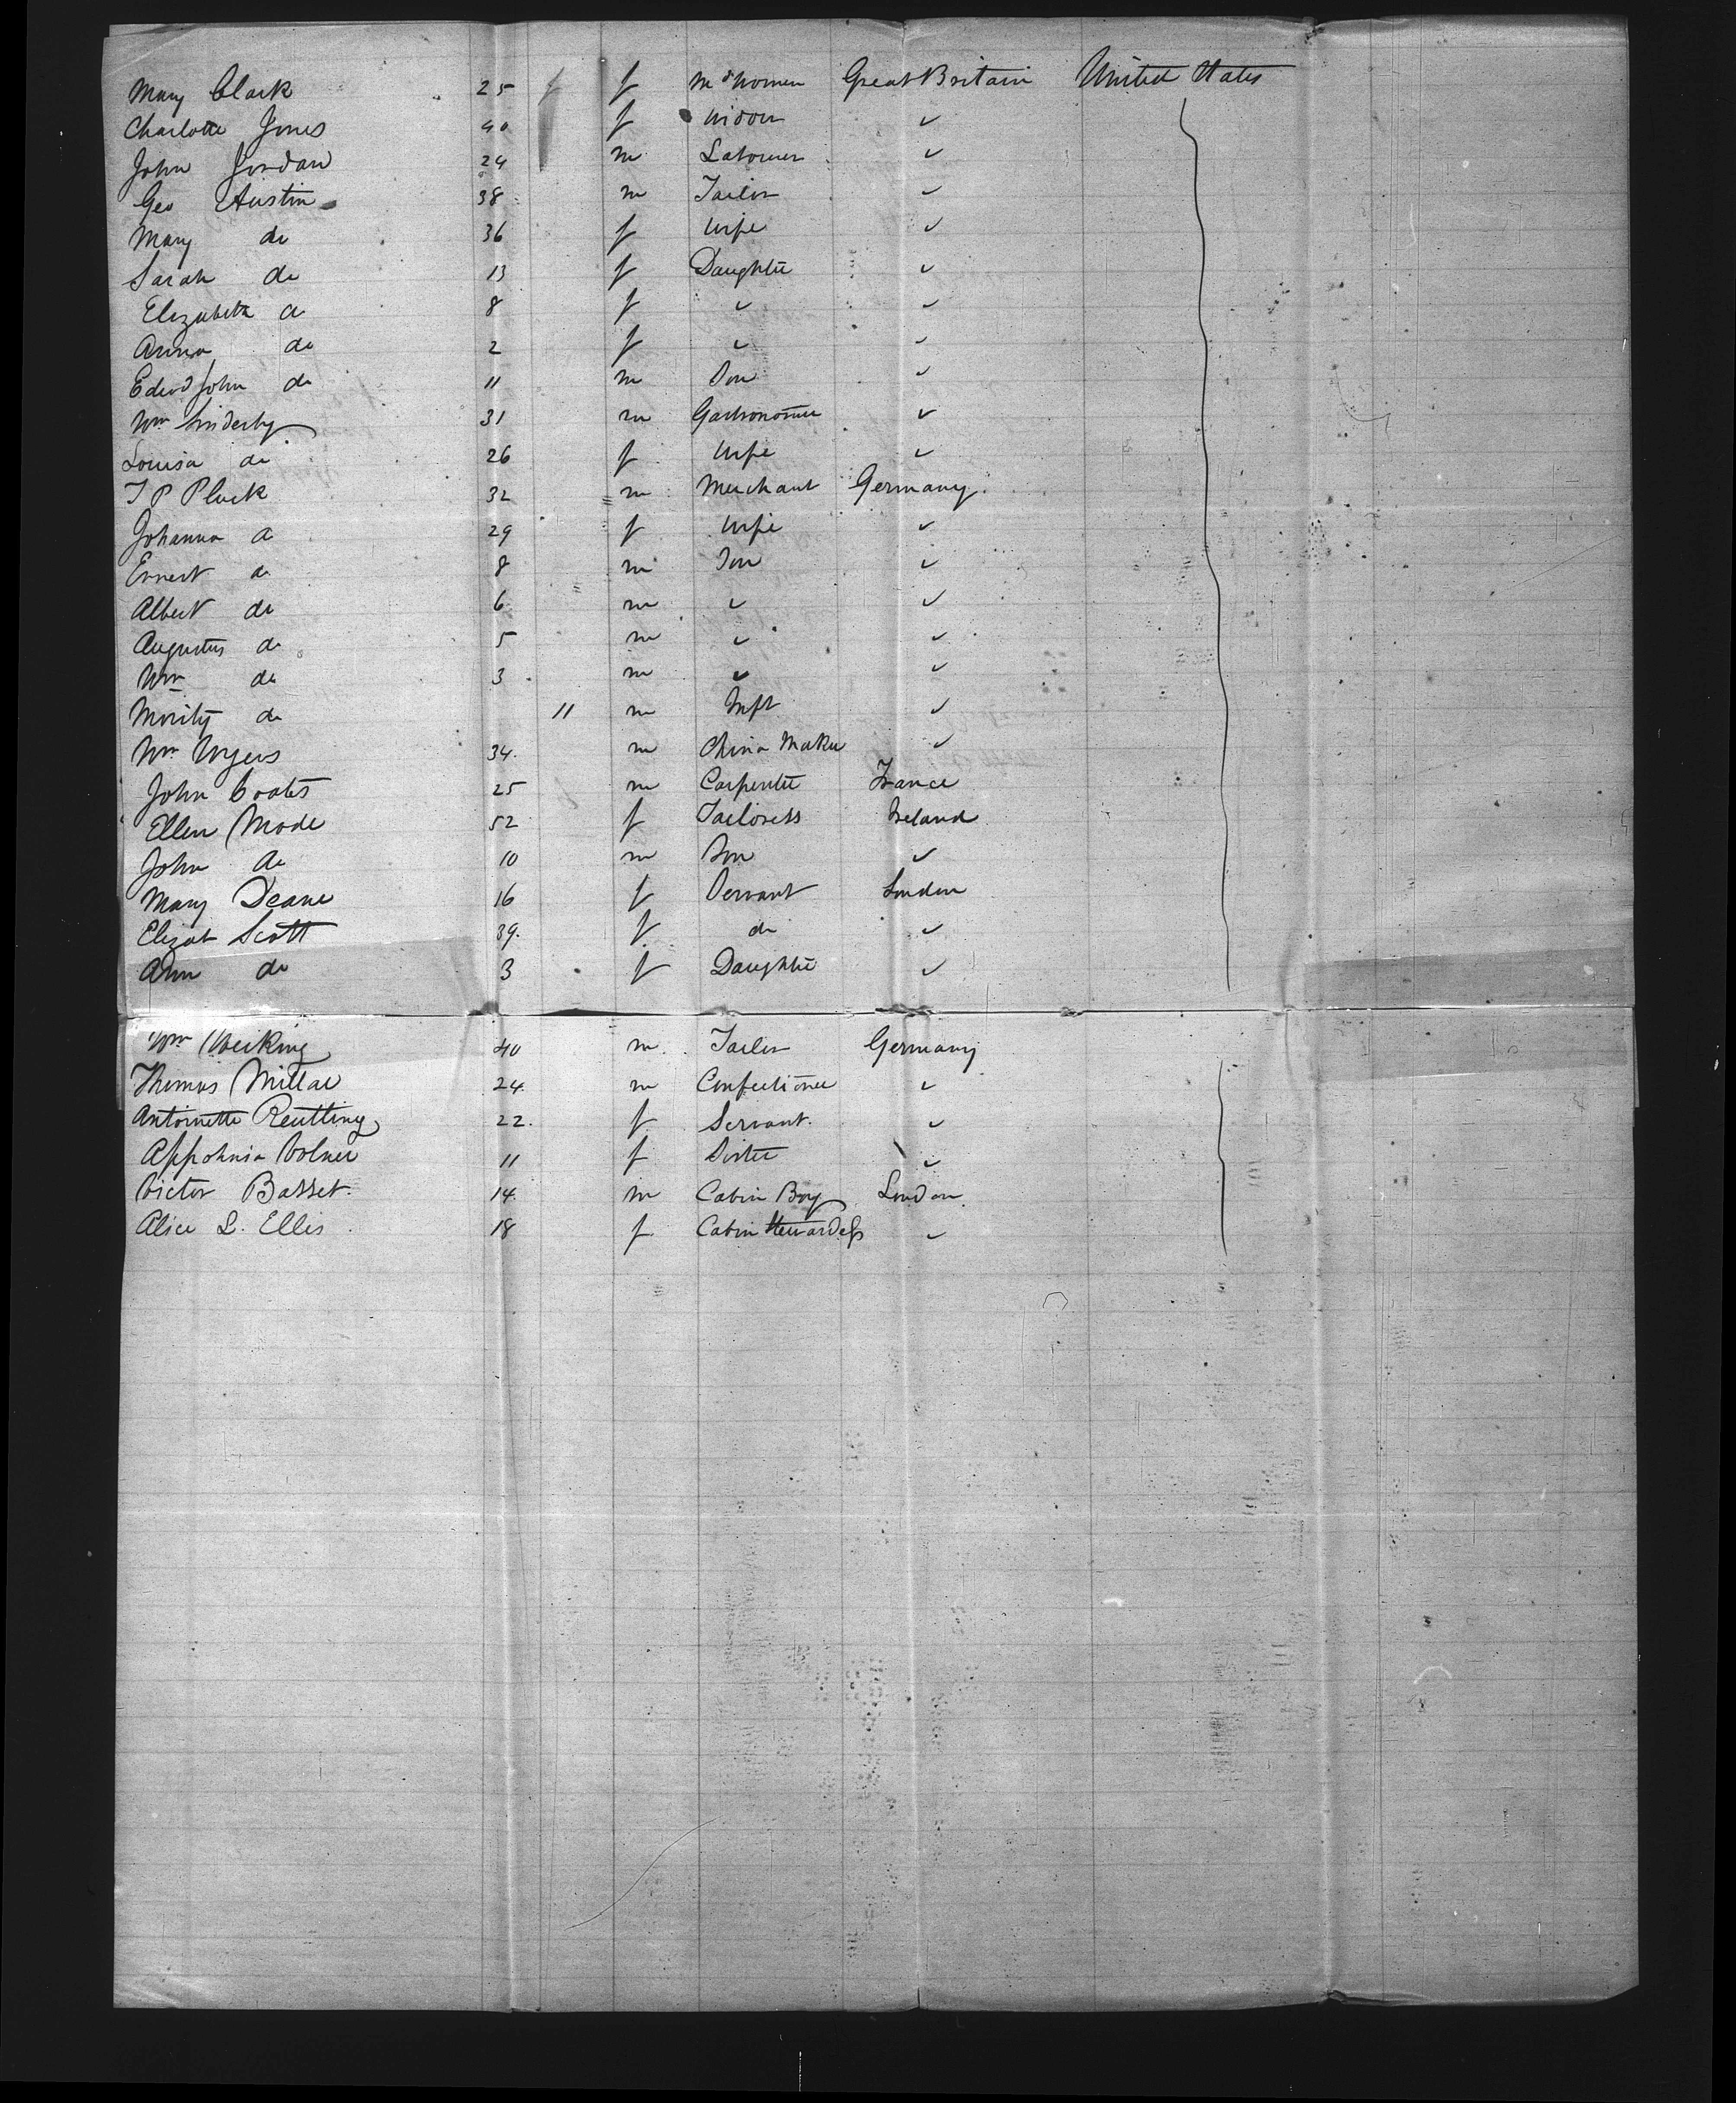 Mary Clark 25 f Md Women Great Britain United States
Charlotte Jones 40 f Widow ✓
John Jordan 24 m Labourer ✓
Geo Austin 38 m Tailor ✓
Mary do 36 f Wife ✓
Sarah do 13 f Daughter ✓
Elizabeth do 8 f ✓ ✓
Anna do 2 f ✓ ✓
Edwd John do 11 m Son ✓
Wm 31 m Gastronomer ✓
Louisa do 26 f Wife ✓
J P Pluck 32 m Merchant Germany
Johanna do 29 f Wife ✓
Ernest do 8 m Son ✓
Albert do 6 m ✓ ✓
Augustus do 5 m ✓ ✓
Wm do 3 m ✓ ✓
Moritz do 11 m Inft ✓
Wm Wyers 34 m China Maker ✓
John Coates 25 m Carpenter France
Ellen Mode 52 f Tailoress Ireland
John do 10 m Son ✓
Mary Deane 16 f Servant London
Elizabt Scott 39 f do ✓
Ann do 3 f Daughter ✓
Wm Weiking 40 m Tailor Germany
Thomas Millar 24 m Confectioner ✓
Antoinette Reutling 22 f Servant ✓
Appohnia Volner 11 f Sister ✓
Victor Basset 14 m Cabin Boy London
Alice L. Ellis 18 f Cabin Stewardess ✓